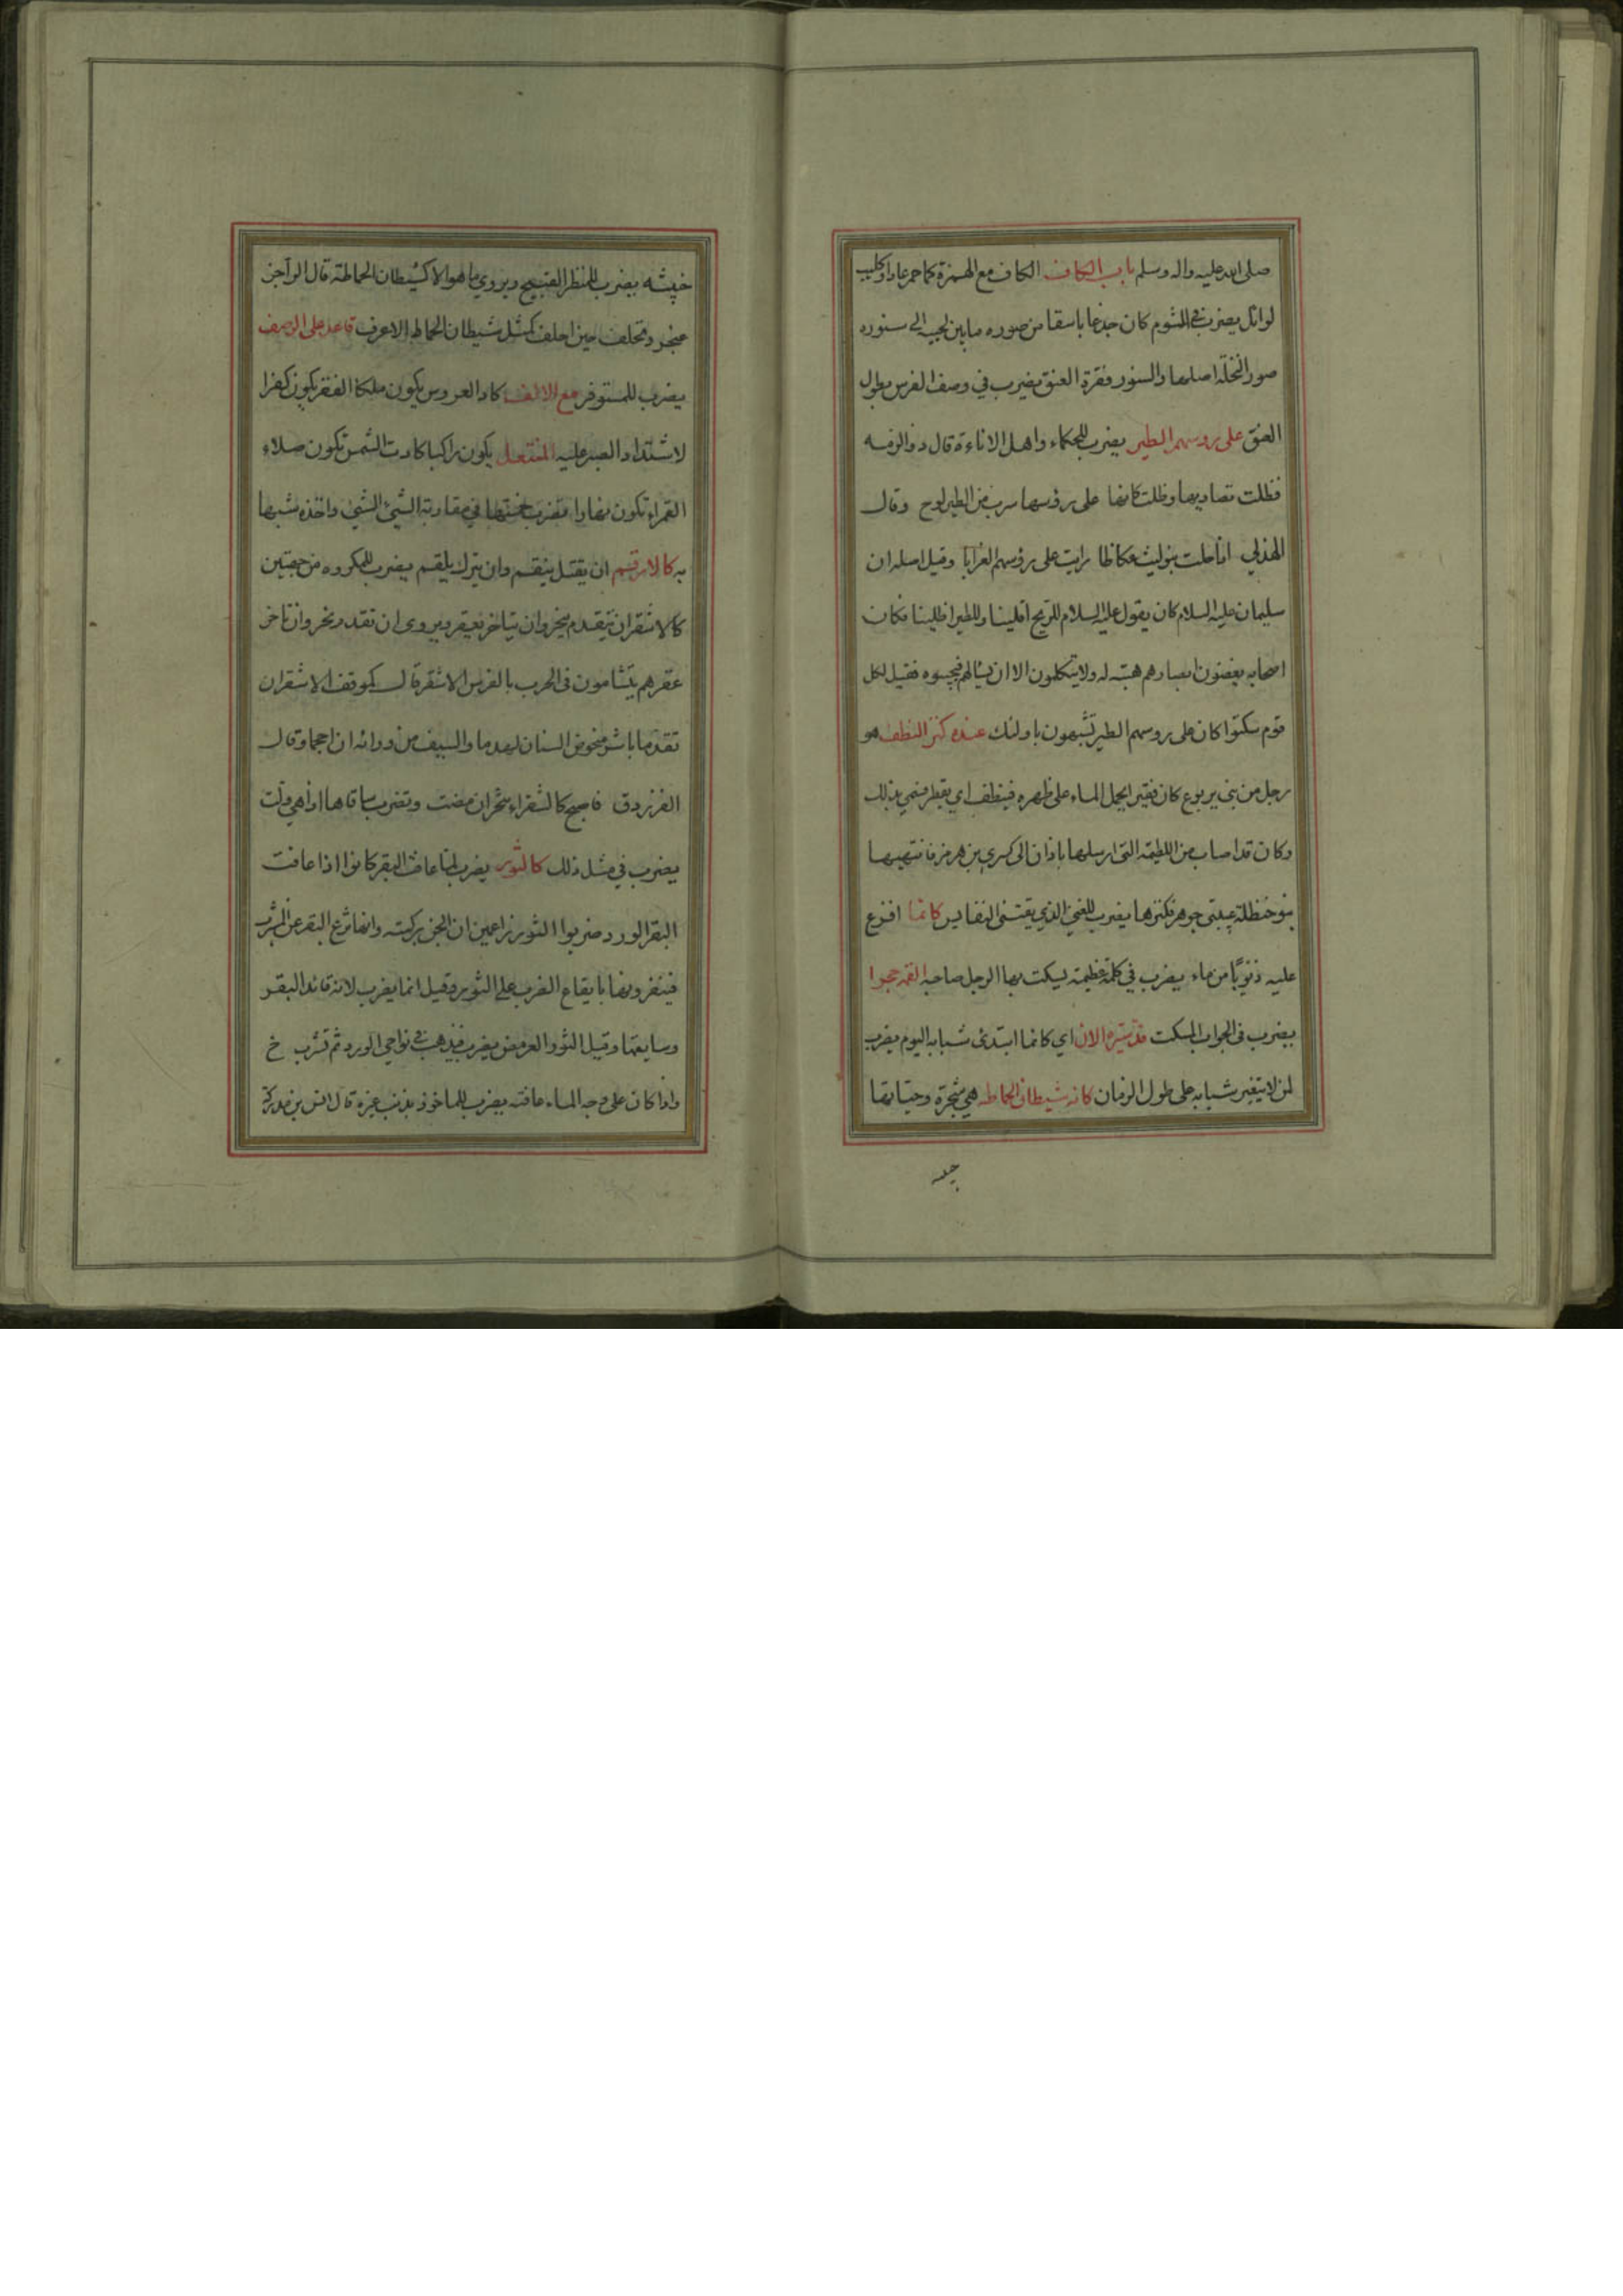 صلى الله عليه واله وسلم باب الكاف الكاف مع الهمزة كاحمر عاد او كليب
لوائل يضرب في الشوم كان جذعا باسقا من صوره ما بين لحييه الى سنوره
صور النخلة اصلها والسنور فقرة العنق يضرب في وصف الفرس بطول
العنق على روسهم الطير يضرب للحكماء واهل الاناءة قال ذو الرمه
فظلت تصاديها وظلت كانها على رؤسها سرب من الطير لوح وقال
الهذلي اذا حلت بنو ليث عكاظا رايت على رؤسهم الغرابا وقيل اصله ان
سليمان عليه السلام كان يقول عليه السلام للريح اقلينا وللطير اظلينا فكان
اصحابه يغضون ابصارهم هيبته له ولا يتكلمون الا ان يسالهم فيجيبوه فقيل لكل
قوم سكتوا كان على روسهم الطير تشبهون باولئك عنده كنز النطف هو
رجل من بني يربوع كان فقيرا يحمل الماء على ظهره فينطف اي يقطر فسمي بذلك
وكان قد اصاب من اللطيمه التي ارسلها باذان الى كسرى بن هرمز فانتهبها
بنو حنظلة عيبتي جوهر فكنزها يضرب للغني الذي يقتني النفايس كانما افرغ
عليه ذنوبًا من ماء يضرب في كلمة عظيمة يسكت بها الرجل صاحبه القمه حجرا
يضرب في الجواب المسكت قد سيره الان اي كانما ابتدئ شبابه اليوم يضرب
لمن لا يتغير شبابه على طول الزمان كانه شيطان الحماطه هي شجرة وحيتانها
خبيثه يضرب للمنظر القبيح ويروي ما هو الا كشيطان الحماطة قال الراجز
عنجرد تحلف حين احلف كمثل شيطان الحماط الاعرف قاعد على الرصف
يضرب للمستوفز مع الالف كاد العروس يكون ملكا الفقر يكون كفرا
لاشتداد الصبر عليه المنتعل يكون راكبا كادت الشمس تكون صلاء
القمراء تكون نهارا تضرب خمستها في مقاربة الشيئ الشيئ واخذه شبها
به كالارقم ان يقتل ينقم وان يترك يلقم يضرب للمكروه من جهتين
كالاشقر ان يتقدم ينحر وان يتاخر يعقر ويروى ان تقدم نحر وان تاخر
عقر هم يتشامون في الحرب بالفرس الاشقر قال كموقف الاشقر ان
تقدما باشر منخوض السنان لهدما والسيف من ورائه ان احجما وقال
الفرزدق فاصبح كالشقراء تنحر ان مضت وتضرب ساقاها اذا هي ولت
يضرب في مثل ذلك كالثور يضرب لما عافت البقر كانوا اذا عافت
البقر الورد ضربوا الثور زاعمين ان الجن يركبه وانها تزع البقر عن الشرب
فينفرونها بايقاع الضرب على الثور وقيل انما يضرب لانه قائد البقر
وسايقها وقيل الثور العرمض يضرب فيذهب في نواحي الورد ثم تشرب خ
واذا كان على وجه الماء عافته يضرب للماخوذ بذنب غيره قال انس بن مدركة